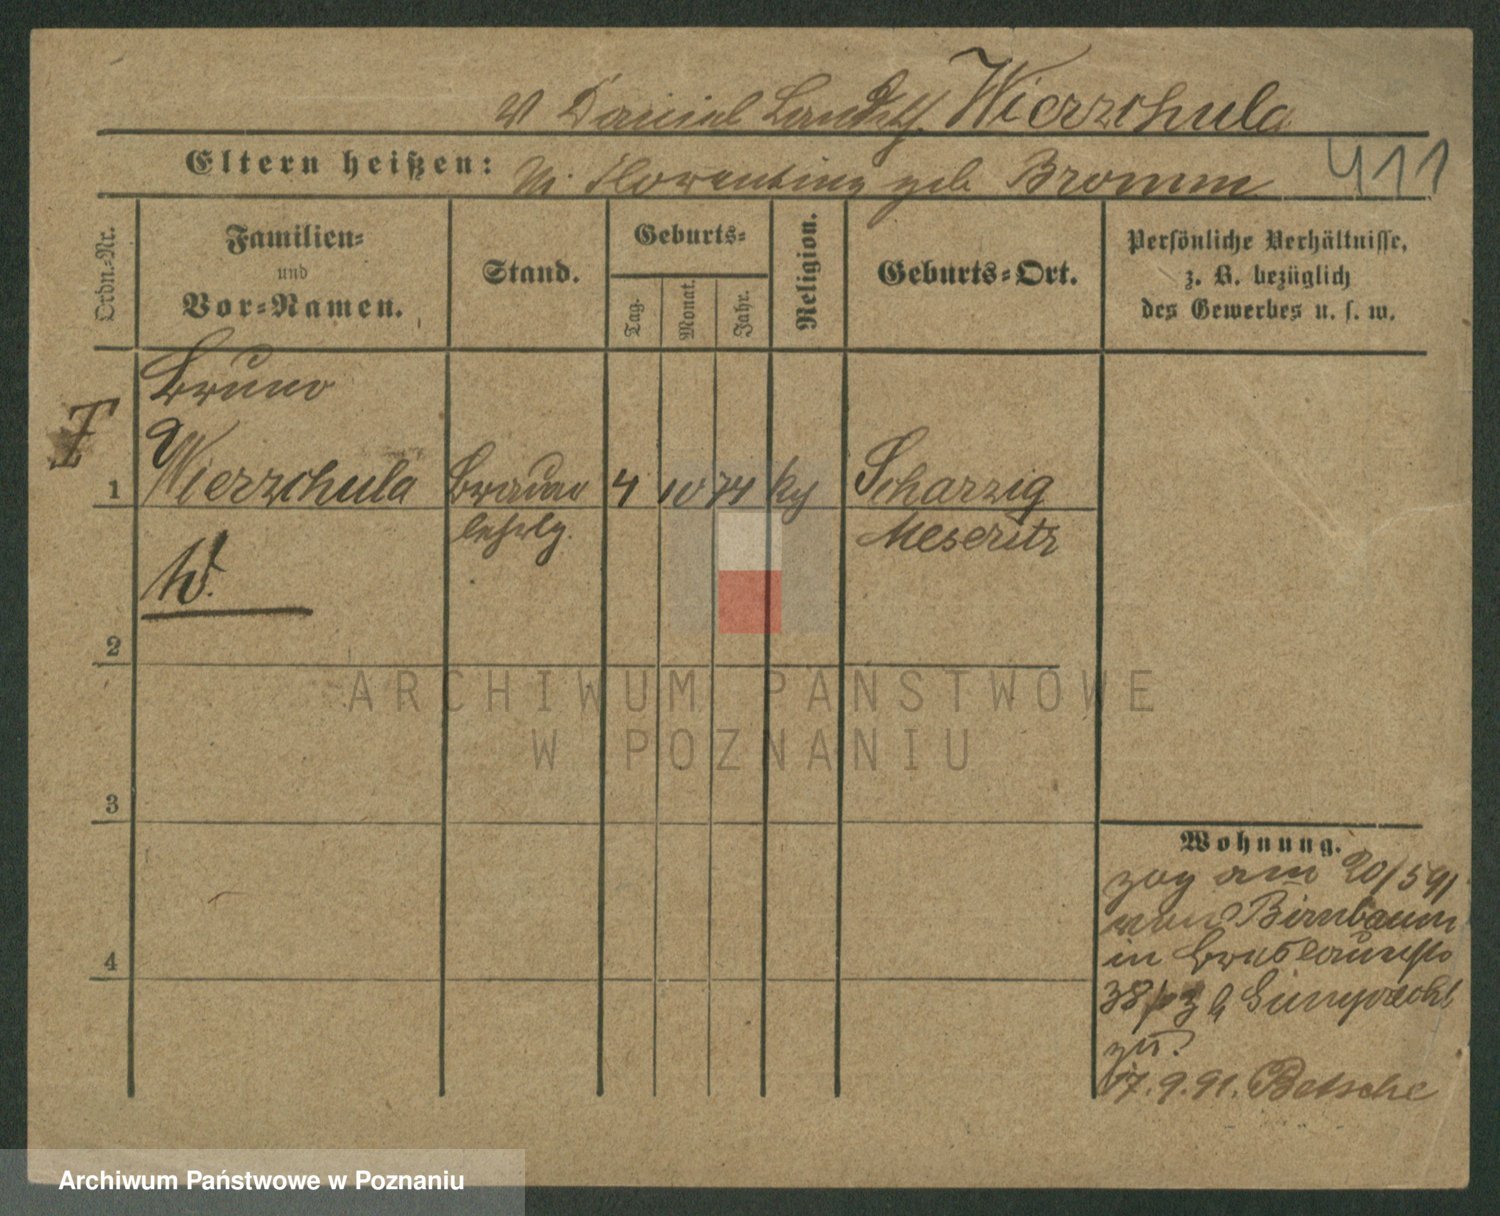 V Daniel Landw. Wierzchula
Eltern heißen: M. Florentine geb. Bromm 411
Ordn.-Nr.
Familien-
und
Vor-Namen.
Stand.
Geburts-
Tag.
Monat.
Jahr.
Religion.
Geburts-Ort.
Persönliche Verhältnisse,
z. B. bezüglich
des Gewerbes u. s. w.
Bruno
F
1 Wierzchula Brauer 4 10 74 Scharzig
lehrlg. Meseritz
W.
2
ARCHIWUM PAŃSTWOWE
W POZNANIU
3
4
Wohnung.
zog am 20/5 91
von Birnbaum
in Breslauerstr
38 b
zu.
17.9.91. Betsche
Archiwum Państwowe w Poznaniu